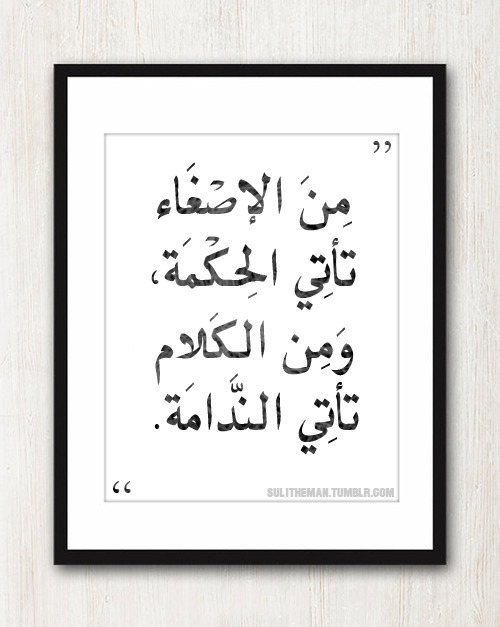 ”
مِنَ الإصْغَاء
تأتِي الحِكْمَة،
وَمِن الكَلام
تأتِي النَّدامَة.
“
SULITHEMAN.TUMBLR.COM